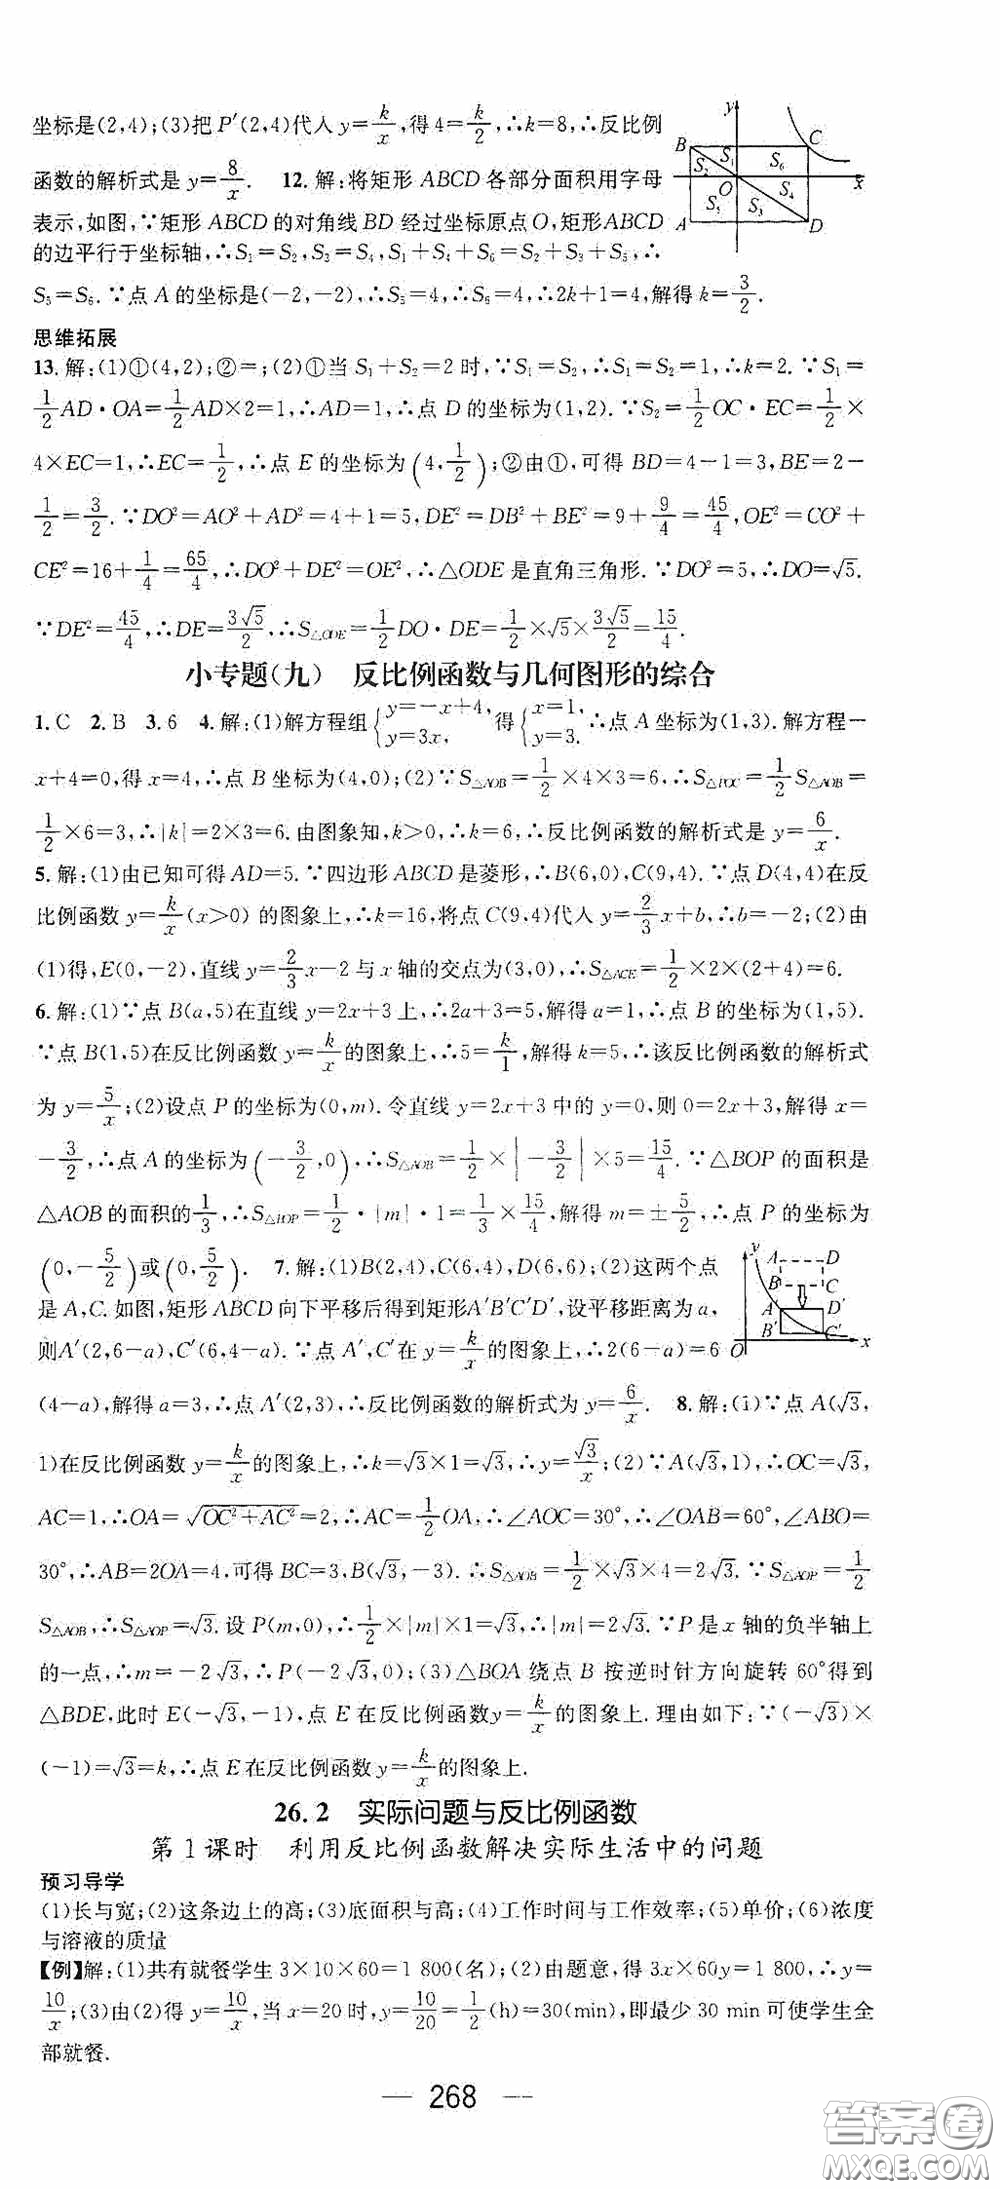 坐标是(2,4);(3)把 P′(2,4)代入 y=k/x,得4=k/2,∴k=8,∴反比例
函数的解析式是 y=8/x. 12.解:将矩形 ABCD 各部分面积用字母
表示,如图,∵矩形 ABCD 的对角线 BD 经过坐标原点 O,矩形ABCD
的边平行于坐标轴,∴S₁=S₂,S₃=S₄,S₁+S₄+S₆=S₂+S₃+S₅,∴
S₅=S₆.∵点 A 的坐标是(-2,-2),∴S₅=4,∴S₆=4,∴2k+1=4,解得 k=3/2.
y B C S₁ S₂ S₆ O x S₄ S₅ S₃ A D
思维拓展
13.解:(1)①(4,2);②=;(2)①当 S₁+S₂=2 时,∵S₁=S₂,∴S₁=S₂=1,∴k=2.∵S₁=
1/2AD·OA=1/2AD×2=1,∴AD=1,∴点 D 的坐标为(1,2).∵S₂=1/2OC·EC=1/2×
4×EC=1,∴EC=1/2,∴点 E 的坐标为(4,1/2);②由①,可得 BD=4-1=3,BE=2-
1/2=3/2.∵DO²=AO²+AD²=4+1=5,DE²=DB²+BE²=9+9/4=45/4,OE²=CO²+
CE²=16+1/4=65/4,∴DO²+DE²=OE²,∴△ODE 是直角三角形.∵DO²=5,∴DO=√5.
∵DE²=45/4,∴DE=3√5/2,∴S△ODE=1/2DO·DE=1/2×√5×3√5/2=15/4.
小专题(九) 反比例函数与几何图形的综合
1.C 2.B 3.6 4.解:(1)解方程组{y=-x+4, y=3x, 得{x=1, y=3. ∴点 A 坐标为(1,3).解方程-
x+4=0,得 x=4,∴点 B 坐标为(4,0);(2)∵S△AOB=1/2×4×3=6,∴S△POC=1/2S△AOB=
1/2×6=3,∴|k|=2×3=6.由图象知,k>0,∴k=6,∴反比例函数的解析式是 y=6/x.
5.解:(1)由已知可得 AD=5.∵四边形 ABCD 是菱形,∴B(6,0),C(9,4).∵点 D(4,4)在反
比例函数 y=k/x(x>0) 的图象上,∴k=16,将点 C(9,4)代入 y=2/3x+b,∴b=-2;(2)由
(1)得,E(0,-2),直线 y=2/3x-2 与 x 轴的交点为(3,0),∴S△ACE=1/2×2×(2+4)=6.
6.解:(1)∵点 B(a,5)在直线 y=2x+3 上,∴2a+3=5,解得 a=1,∴点 B 的坐标为(1,5).
∵点 B(1,5)在反比例函数 y=k/x的图象上,∴5=k/1,解得 k=5,∴该反比例函数的解析式
为 y=5/x;(2)设点 P 的坐标为(0,m).令直线 y=2x+3 中的 y=0,则 0=2x+3,解得 x=
-3/2,∴点 A 的坐标为(-3/2,0),∴S△AOB=1/2×|-3/2|×5=15/4.∵△BOP 的面积是
△AOB 的面积的1/3,∴S△BOP=1/2·|m|·1=1/3×15/4,解得 m=±5/2,∴点 P 的坐标为
(0,-5/2)或(0,5/2). 7.解:(1)B(2,4),C(6,4),D(6,6);(2)这两个点
是 A,C.如图,矩形 ABCD 向下平移后得到矩形A′B′C′D′,设平移距离为 a,
则A′(2,6-a),C′(6,4-a).∵点 A′,C′在 y=k/x的图象上,∴2(6-a)=6
y A D B C A′ D′ B′ C′ O x
(4-a),解得 a=3,∴点 A′(2,3),∴反比例函数的解析式为 y=6/x. 8.解:(1)∵点 A(√3,
1)在反比例函数 y=k/x的图象上,∴k=√3×1=√3,∴y=√3/x;(2)∵A(√3,1),∴OC=√3,
AC=1,∴OA=√(OC²+AC²)=2,∴AC=1/2OA,∴∠AOC=30°,∴∠OAB=60°,∠ABO=
30°,∴AB=2OA=4,可得 BC=3,B(√3,-3).∴S△AOB=1/2×√3×4=2√3.∵S△AOP=1/2
S△AOB,∴S△AOP=√3.设 P(m,0),∴1/2×|m|×1=√3,∴|m|=2√3.∵P 是 x 轴的负半轴上
的一点,∴m=-2√3,∴P(-2√3,0);(3)△BOA 绕点 B 按逆时针方向旋转 60°得到
△BDE,此时 E(-√3,-1),点 E 在反比例函数y=k/x的图象上.理由如下:∵(-√3)×
(-1)=√3=k,∴点 E 在反比例函数 y=k/x的图象上.
26.2 实际问题与反比例函数
第1课时 利用反比例函数解决实际生活中的问题
预习导学
(1)长与宽;(2)这条边上的高;(3)底面积与高;(4)工作时间与工作效率;(5)单价;(6)浓度
与溶液的质量
【例】解:(1)共有就餐学生 3×10×60=1 800(名);(2)由题意,得 3x×60y=1 800,∴y=
10/x;(3)由(2)得 y=10/x,当 x=20 时,y=10/20=1/2(h)=30(min),即最少 30 min 可使学生全
部就餐.
— 268 —
答案圈
MXQE.COM